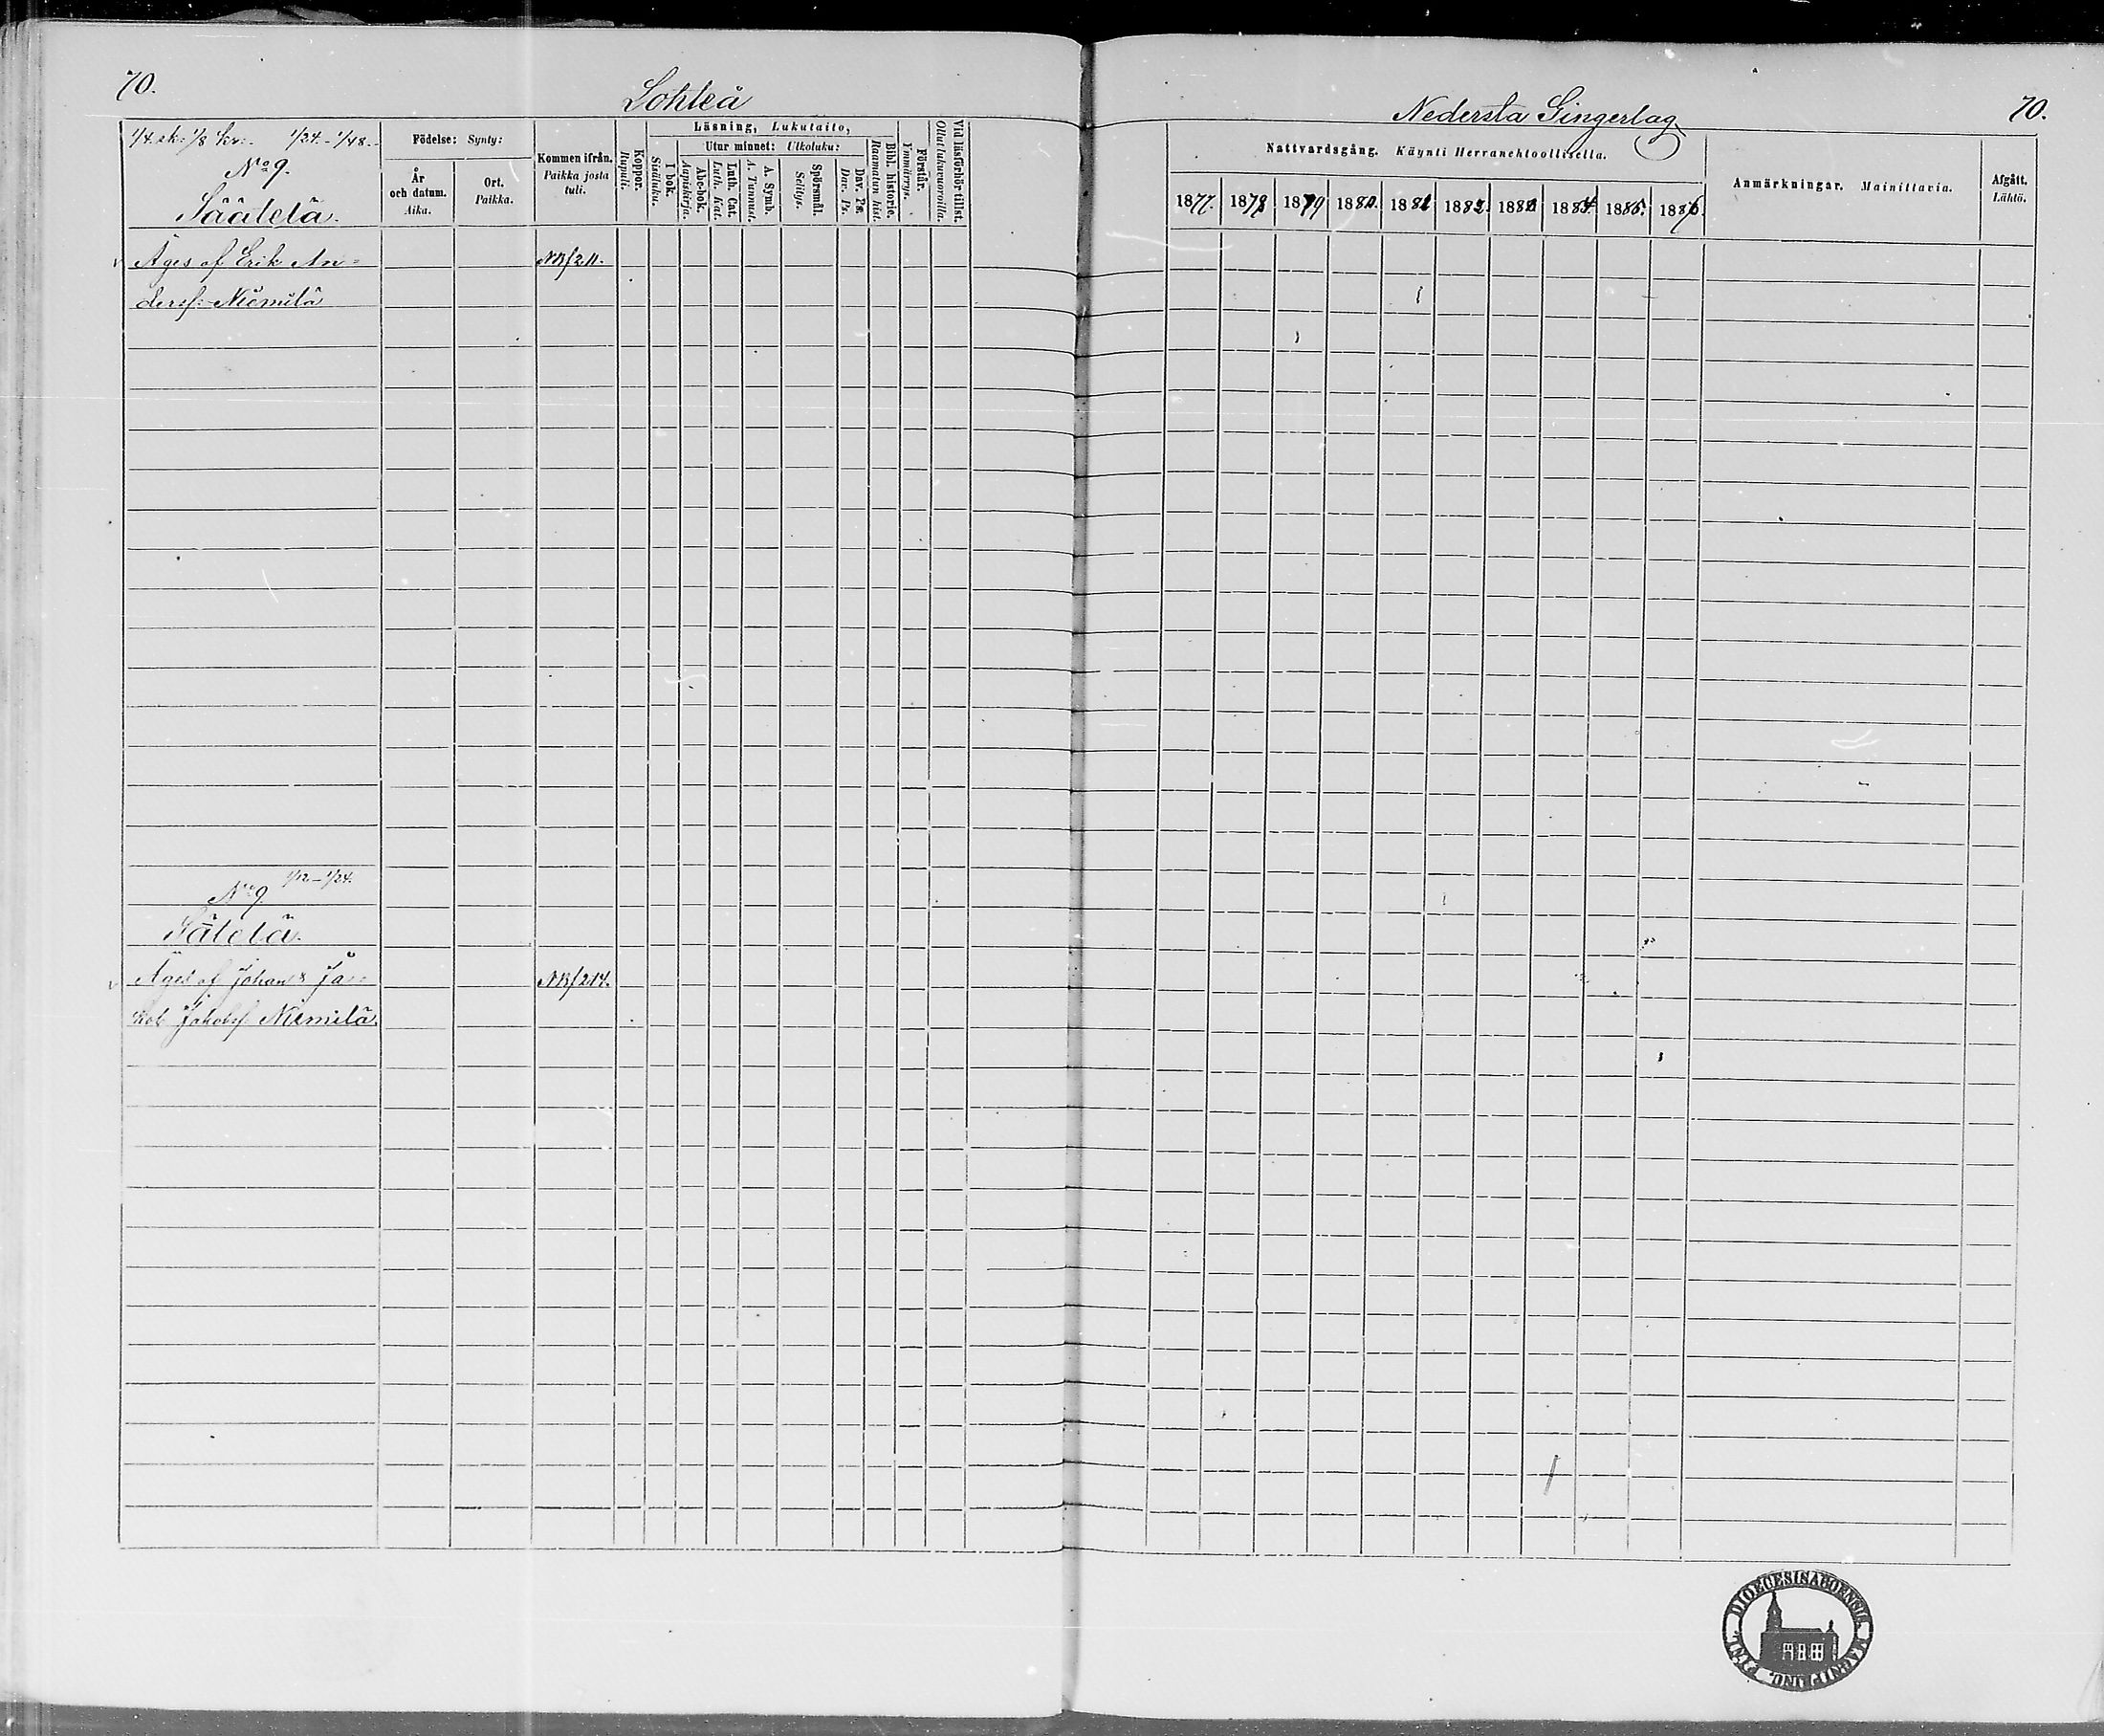 70.
Lohteå
1/4 sk: 1/8 kr:. 1/24.-1/48.
No 9.
Säätelä.
Födelse: Synty:
År och datum. Aika.
Ort. Paikka.
Kommen ifrån. Paikka josta tuli.
Koppor. Rupuli.
Läsning, Lukutaito,
I bok. Sisäluku.
Utur minnet: Ulkoluku:
Abc-bok. Aapiskirja.
Luth. Cat. Luth. Kat.
A. Symb. A. Tunnust.
Spörsmål. Selitys.
Dav. Ps. Dav. Ps.
Bibl. historie. Raamatun hist.
Förstår. Ymmärrys.
Vid läsförhör tillst. Ollut lukuvuoroilla.
Äges af Erik An= NB/211.
dersf: Niemilä
No 9 1/12-1/24.
Säätelä.
Äges af Johan & Ja= NB/214.
kob Jakobsf Niemilä.
Nedersta Gingerlag
70.
Nattvardsgång. Käynti Herranehtoollisella.
1877. 1878 1879 1880. 1881 1882. 1883 1884. 1885. 1886.
Anmärkningar. Mainittavia.
Afgått. Lähtö.
DIOECESIS ABOENSIS MAGNI PRINC. FINL.